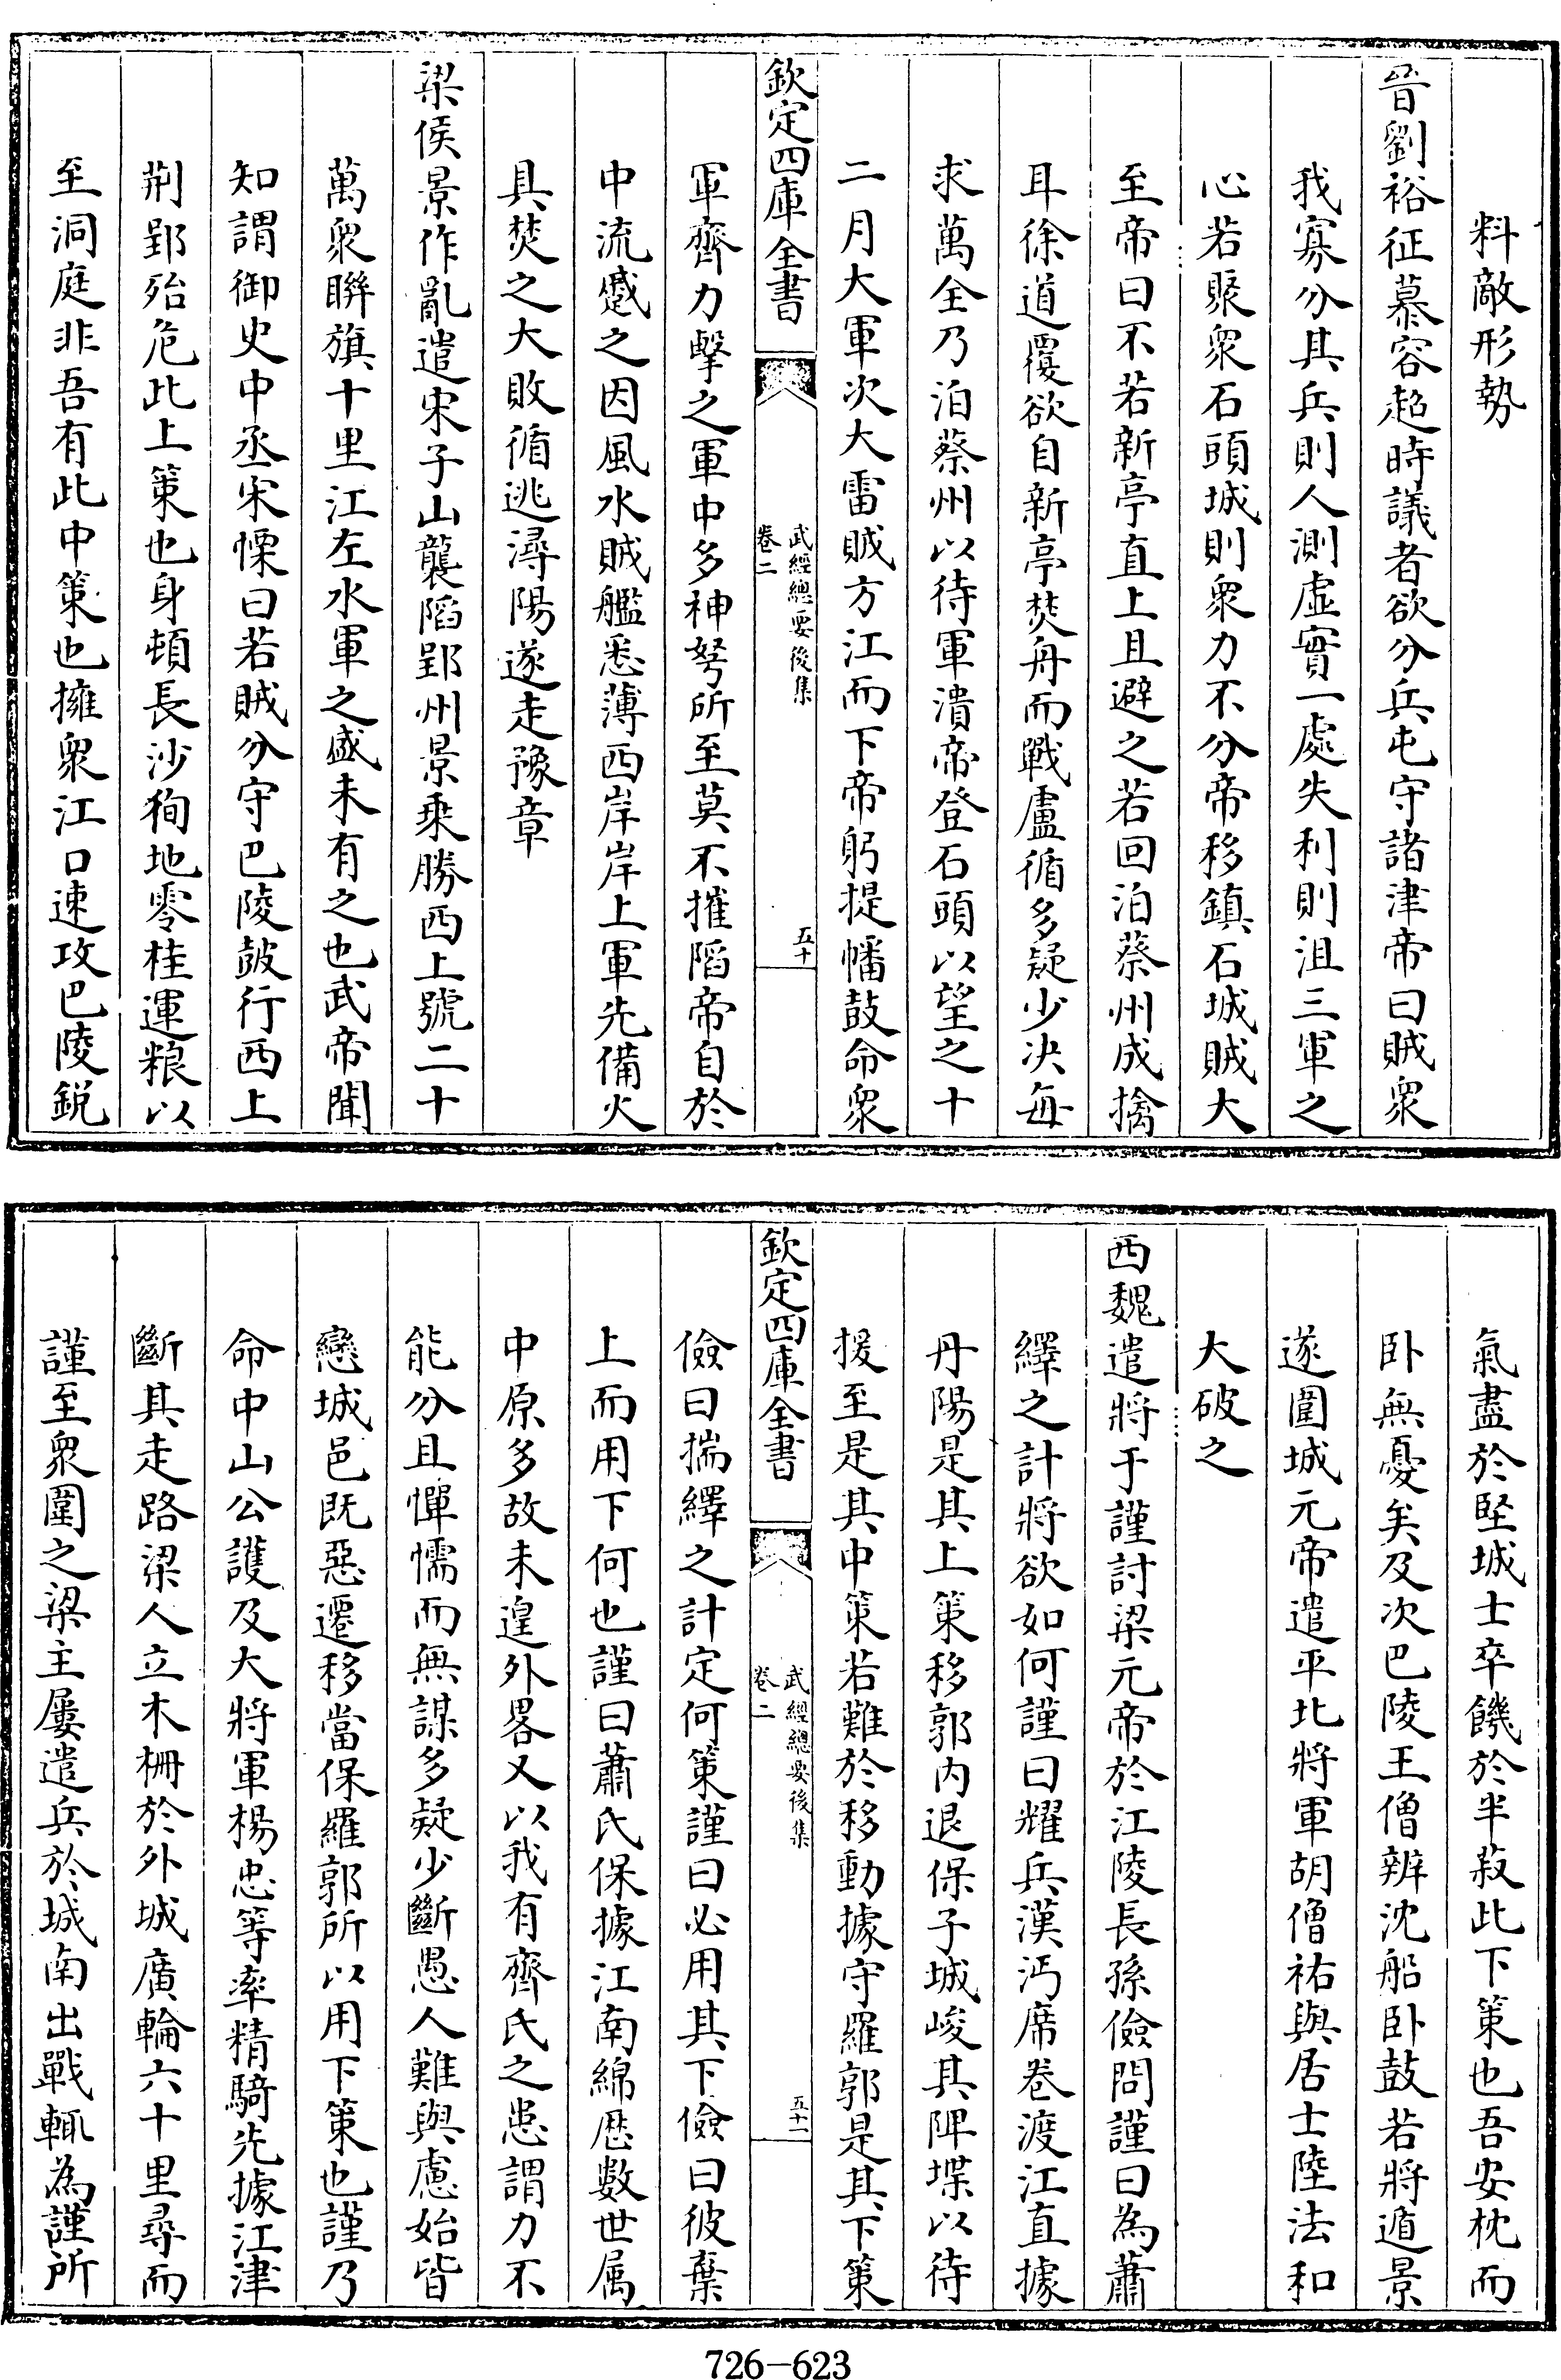 料敵形勢
晉劉裕征慕容超時議者欲分兵屯守諸津帝曰賊衆
我寡分其兵則人測虛實一處失利則沮三軍之
心若聚衆石頭城則衆力不分帝移鎮石城賊大
至帝曰不若新亭直上且避之若回泊蔡州成擒
耳徐道覆欲自新亭焚舟而戰盧循多疑少决每
求萬全乃泊蔡州以待軍潰帝登石頭以望之十
二月大軍次大雷賊方江而下帝躬提幡鼓命衆
欽定四庫全書
武經總要後集
卷二
五十
軍齊力擊之軍中多神弩所至莫不摧陷帝自於
中流蹙之因風水賊艦悉薄西岸岸上軍先備火
具焚之大敗循逃潯陽遂走豫章
梁侯景作亂遣宋子山襲䧟郢州景乘勝西上號二十
萬衆聯旗十里江左水軍之盛未有之也武帝聞
知謂御史中丞宋慄曰若賊分守巴陵皷行西上
荆郢殆危此上策也身頓長沙狥地零桂運粮以
至洞庭非吾有此中策也擁衆江口速攻巴陵銳
氣盡於堅城士卒饑於半菽此下策也吾安枕而
卧無憂矣及次巴陵王僧辨沈船卧鼓若將遁景
遂圍城元帝遣平北將軍胡僧祐與居士陸法和
大破之
西魏遣將于謹討梁元帝於江陵長孫儉問謹曰為蕭
繹之計將欲如何謹曰耀兵漢沔席卷渡江直據
丹陽是其上策移郭内退保子城峻其陴堞以待
援至是其中策若難於移動據守羅郭是其下策
欽定四庫全書
武經總要後集
卷二
五十一
儉曰揣繹之計定何策謹曰必用其下儉曰彼棄
上而用下何也謹曰蕭氏保據江南綿歴數世属
中原多故未遑外畧又以我有齊氏之患謂力不
能分且憚懦而無謀多疑少斷愚人難與慮始皆
戀城邑既惡遷移當保羅郭所以用下策也謹乃
命中山公護及大將軍楊忠等率精騎先據江津
斷其走路梁人立木栅於外城廣輪六十里尋而
謹至衆圍之梁主屢遣兵於城南出戰輒為謹所
726-623